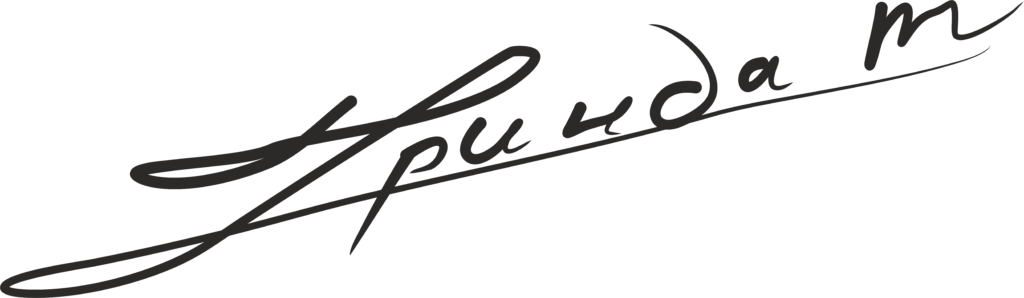 Гринда т